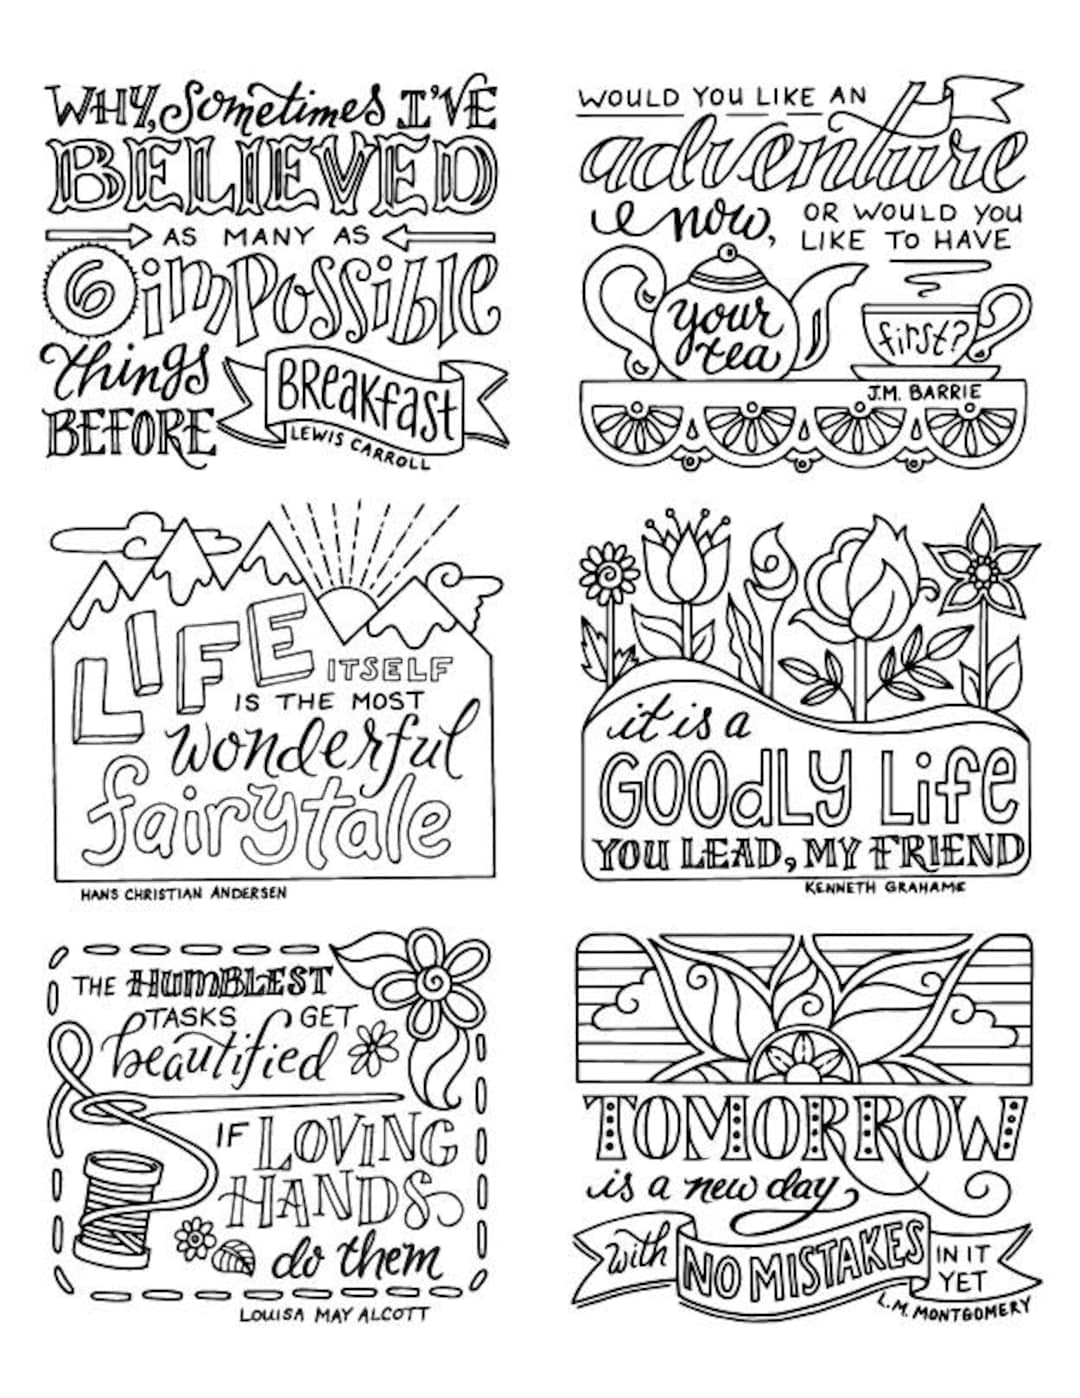 WHY, Sometimes I'VE
BELIEVED
AS MANY AS
6 impossible
things
BEFORE
BREAKFAST
LEWIS CARROLL
WOULD YOU LIKE AN
adventure
now,
OR WOULD YOU
LIKE TO HAVE
your
tea
first?
J.M. BARRIE
LIFE
ITSELF
IS THE MOST
wonderful
fairytale
HANS CHRISTIAN ANDERSEN
it is a
GOODLY LiFe
YOU LEAD, MY FRIEND
KENNETH GRAHAME
THE HUMBLEST
TASKS GET
beautified
IF LOVING
HANDS
do them
LOUISA MAY ALCOTT
TOMORROW
is a new day,
with
NO MISTAKES
IN IT
YET
L.M. MONTGOMERY